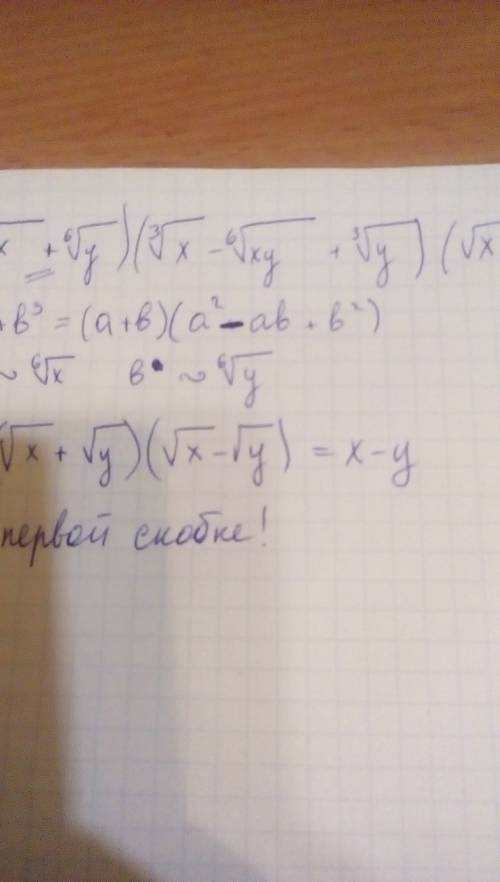 x + ⁶√y)(³√x - ⁶√xy + ³√y)(√x
+ в³ = (a+в)(a² - aв + в²)
~ ⁶√x в ~ ⁶√y
(√x + √y)(√x - √y) = x - y
первой скобке!